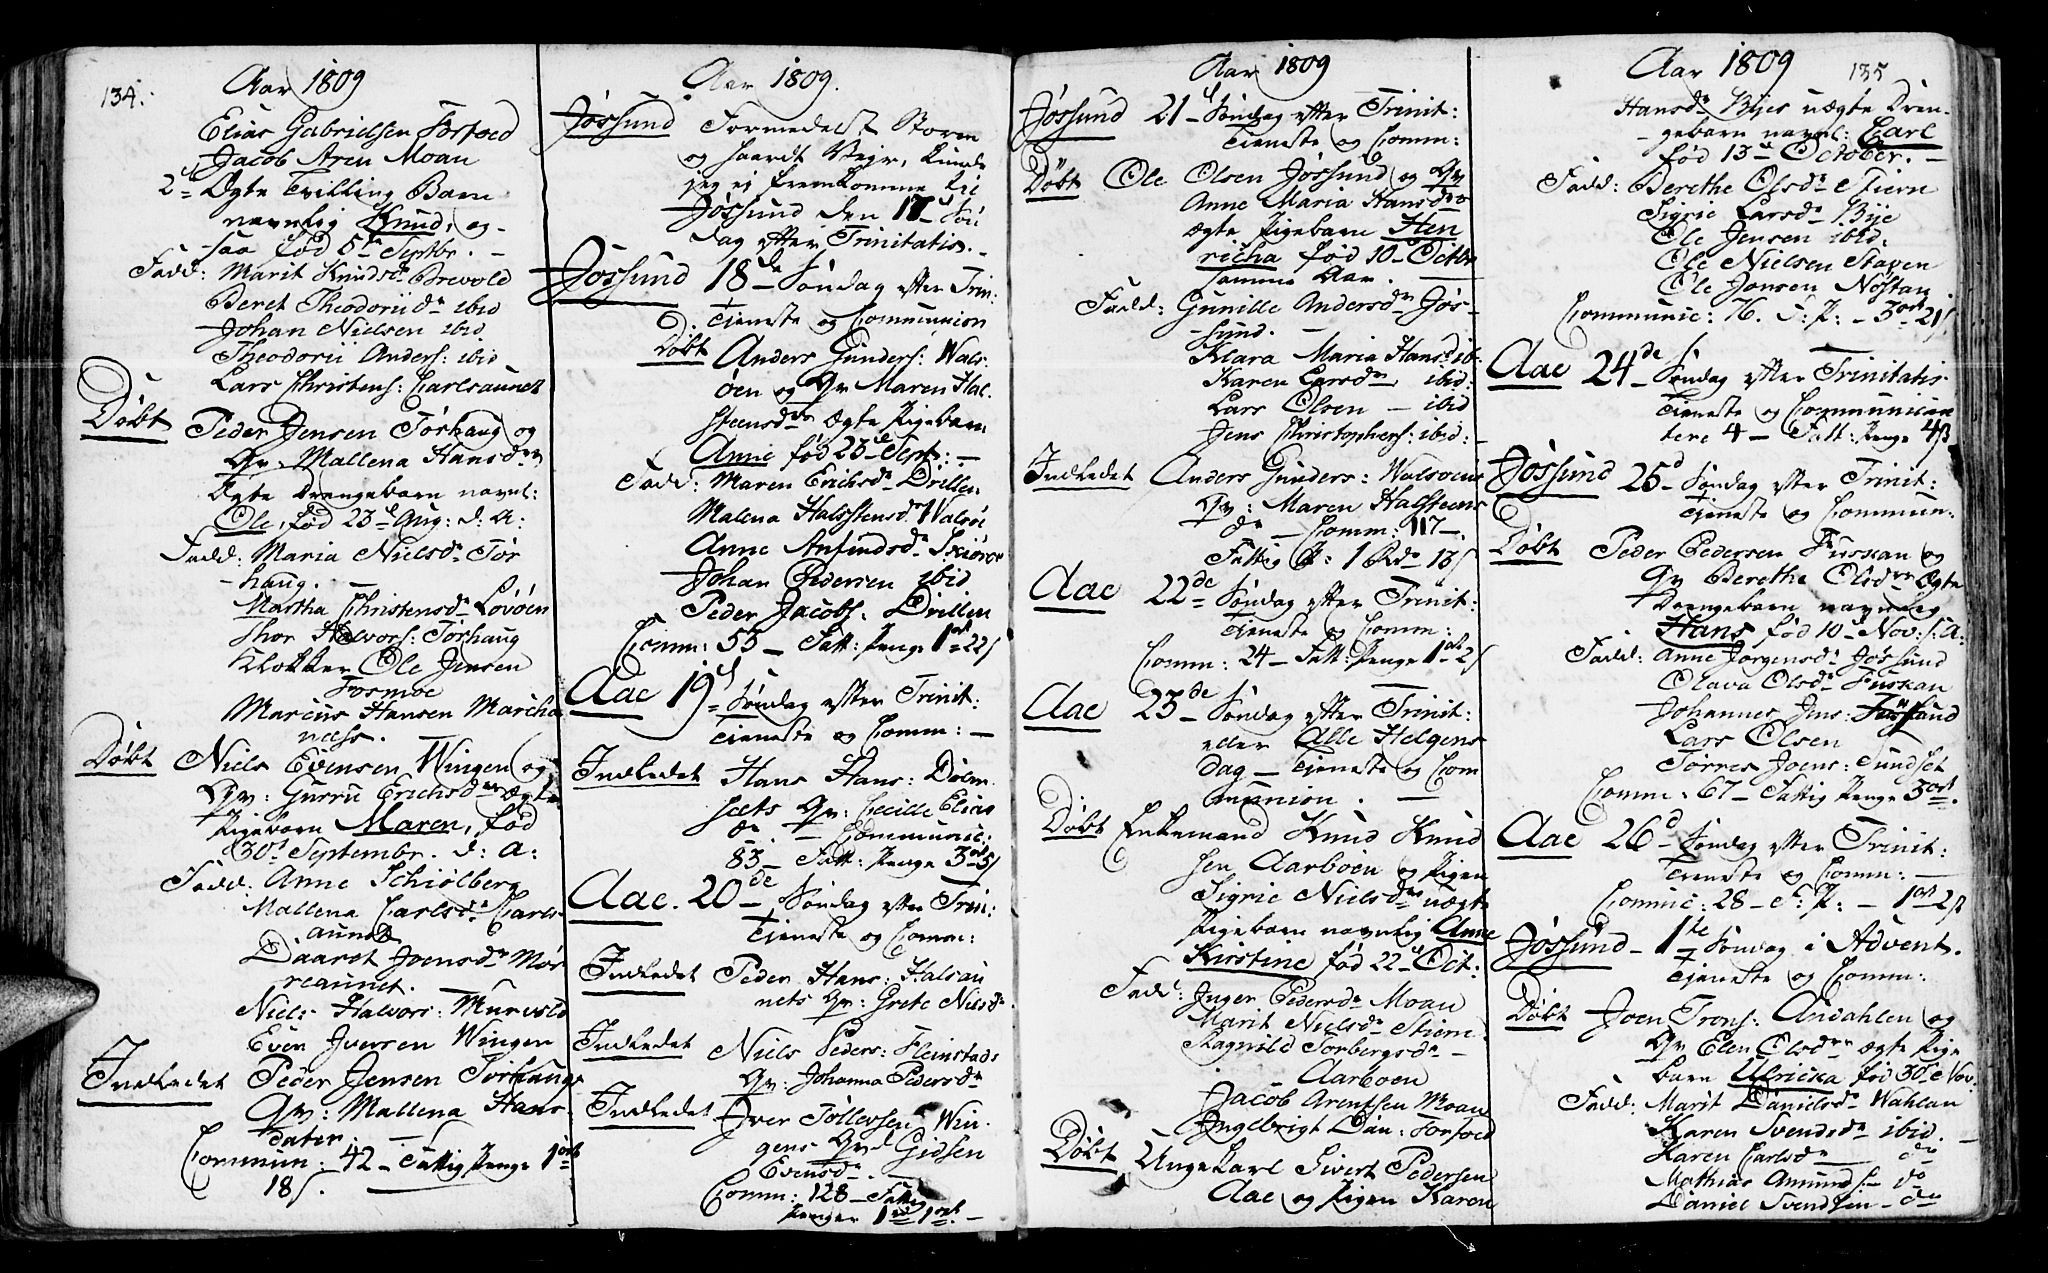 134.
Aar 1809
Elias Gabrielsen Forfoed
Jacob Aren Moan
2det Ægte Tvilling Barn
navnlig Knud, og-
saa fød 5te Septbr. -
Fadd: Marit Knudsdr Brevold
Beret Theodoriidr ibid
Johan Nielsen ibid
Theodorii Anders: ibid
Lars Christens: Carlsaunet
Døbt Peder Jensen Tørhaug og
Qv. Mallena Hansdr
Ægte Drengebarn navnl:
Ole, fød 23d Aug: d: A:
Fadd: Maria Nielsdr Tør
haug. -
Martha Christensdr Lovøen
Thor Halvors: Tørhaug
Klokker Ole Jensen
Fosmoe
Marcus Hansen Marcha
næss.
Døbt Niels Evensen Wingen og
Qv: Gurru Erichsdr Ægte
Pigebarn Maren, fød
30t Septembr. d: A:
Fadd: Anne Schiølberg
Mallena Carlsdr Carls-
aunet
Daaret Joensdr Mør
reaunet.
Niels Halvors: Murvold
Even Iversen Wingen
Indledet Peder Jensen Tørhaugs
Qv: Mallena Hans
datter -
Commun: 42 - Fattig Penge 1ort
18s.
Aar 1809.
Jøssund Formedelst Storm
og haardt Vejr, kunde
jeg ei fremkomme til
Jøssund den 17d Søn
dag efter Trinitatis. -
Jøssund 18de Søndag efter Trin:
Tieneste og Communion
Døbt Anders Gunders: Wals-
øen og Qv Maren Hal-
steensdr Ægte Pigebarn
Anne fød 23d Sept: -
Fadd: Maren Erichsdr Drillen
Malena Halsstensdr Walsøe
Anne Anfindsdr Skiørøe
Johan Pedersen ibid
Peder Jacobs. Drillen
Comm: 53 - Fatt: Penge 1ort 22s
Aae 19d Søndag efter Trinit:
Tieneste og Comm: -
Indledet Hans Hans: Dølm
sæts Qv: Cecille Elias
dr - Communic:
83 - Fatt: Penge 3ort 5s
Aae. 20de Søndag efter Trin:
Tieneste og Comm:
Indledet Peder Hans: Halsau
nets Qv: Grete Nilsdr
Indledet Niels Peders: Fleinstads
Qv: Johanna Pedersdr
Indledet Iver Tollefsen Win-
gens Qvd Gidsen
Evensdr -
Comm: 128 - Fattig
Penger 1rd 1ort. -
Aar 1809
Jøssund 21d Søndag efter Trinit:
Tieneste og Comm:
Døbt Ole Olsen Jøssund og Qv
Anne Maria Hansdr
ægte Pigebarn Hen
richa fød 10 - Octbr
samme Aar. -
Fadd: Gunille Andersdr Jøs-
sund. -
Klara Maria Hansd: ib:
Karen Larsdr ibid:
Lars Olsen - ibid
Jens Christophers: ibid: -
Indledet Anders Gunders: Walsøens
Qv: Maren Halsteens
dr - Comm: 117 -
Fattig P: 1 Rdr 13s
Aae 22de Søndag efter Trinit:
Tieneste og Comm:
Comm: 24 - Fatt: Penge 1ort 2s
Aae 23de Søndag efter Trinit:
eller Alle Helgens
dag - Tieneste og Com
munion. -
Døbt Enkemand Knud Knud
sen Aarboen og Pigen
Sigrie Nielsdr uægte
Pigebarn navnlig Anne
Kirstine fød 22d Oct:
Fadd: Inger Pedersdr Moan
Marit Nielsdr Stiern
Ragnild Torbergsdr -
Aarboen
Jacob Arentsen Moan
Ingebrigt Dan: Forfoed
Døbt Unge Karl Sivert Pedersen
Aae og Pigen Karen
Aar 1809 135
Hansdr Byes uægte Dren-
gebarn navnl: Carl
fød 13d October. -
Fadd: Berethe Olsdr Stiern
Sigrie Larsdr Bye
Ole Jensen ibid:
Ole Nielsen Stagen
Ole Jonsen Nøstan
Communic: 76. F: P: - 3ort 21s
Aae 24de Søndag efter Trinitatis
Tieneste og Communican
tere 4 - Fatt: Penge 4s
Jøssund 25d Søndag efter Trinit:
Tieneste og Commun:
Døbt Peder Pedersen Fuskan og
Qv Berethe Olsdr Ægte
Drengebarn navnlig
Hans fød 10d Nov: s: A:
Fadd: Anne Jørgensdr Jøssund
Olava Olsdr Fuskan
Johannes Jens: Jøssund
Lars Olsen
Torres Joens: Sundset
Comm: 67 - Fattig Penge 3ort.
Aae 26d Søndag efter Trinit:
Tieneste og Comm: -
Commu: 28 - F: P: - 1ort 2s
Jøssund - 1te Søndag i Advent.
Tieneste og Comm:
Døbt Joen Trons: Andahlen og
Qv Elen Olsdr ægte Pige
barn Ulricka fød 30te Nov.
Fadd: Marit Danielsdr Wahlan
Karen Svendsdr ibid. -
Karen Carlsdr do
Mathias Amunds - do
Daniel Svendsen - do